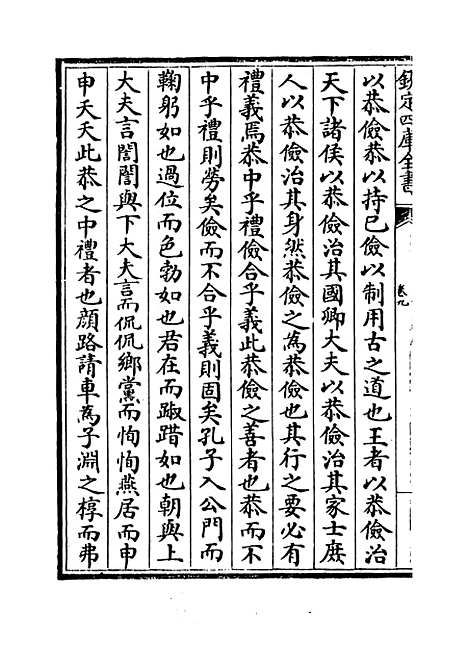 欽定四庫全書
卷九
以恭儉恭以持已儉以制用古之道也王者以恭儉治
天下諸侯以恭儉治其國卿大夫以恭儉治其家士庶
人以恭儉治其身然恭儉之為恭儉也其行之要必有
禮義焉恭中乎禮儉合乎義此恭儉之善者也恭而不
中乎禮則勞矣儉而不合乎義則固矣孔子入公門而
鞠躬如也過位而色勃如也君在而踧踖如也朝與上
大夫言誾誾與下大夫言而侃侃鄉黨而恂恂燕居而申
申夭夭此恭之中禮者也顔路請車為子淵之椁而弗